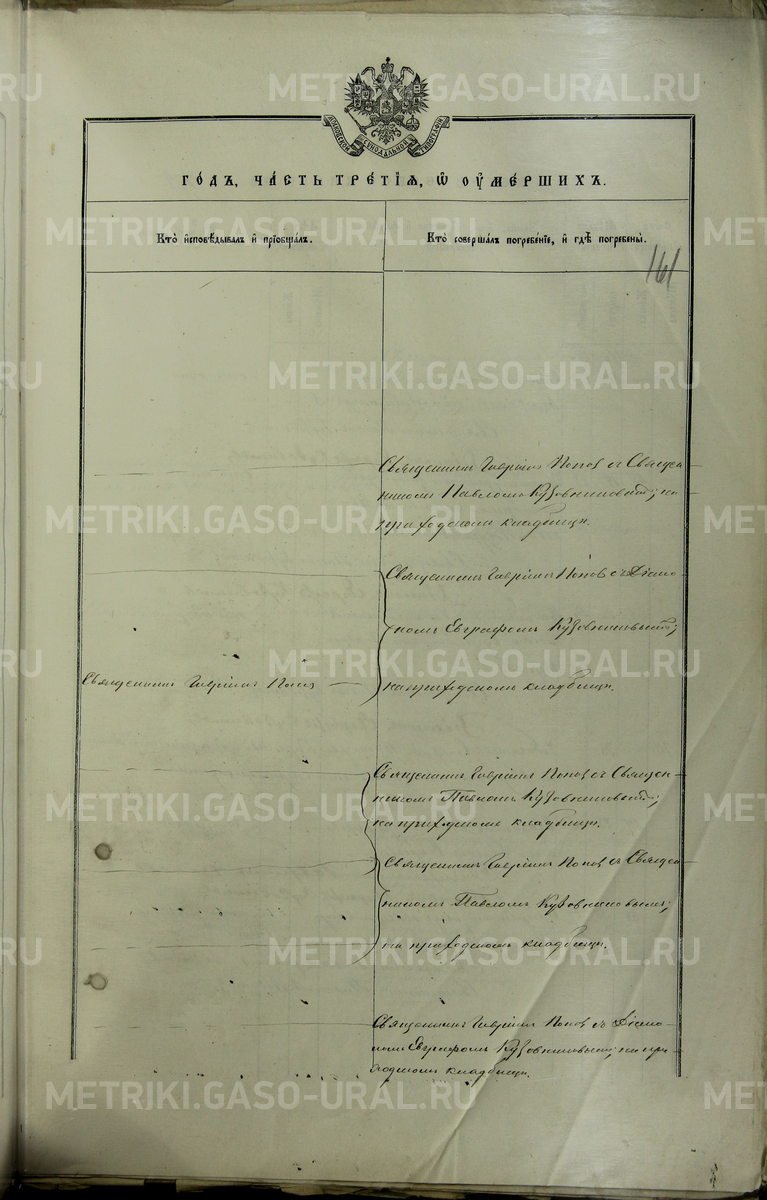 МОСКОВСКОЙ СИНОДАЛЬНОЙ ТИПОГРАФІИ
ГО́ДЪ, ЧА́СТЬ ТРЕ́ТІѦ, Ѡ ОУМЕ́РШИХЪ.
Кто̀ и҆сповѣ́дывалъ и҆ прїобща́лъ.
Кто̀ соверша́лъ погребе́ніе, и҆ гдѣ̀ погребены̀.
161
Священникъ Гавріилъ Поповъ съ Священ-
никомъ Павломъ Кузовниковымъ; на
приходскомъ кладбищѣ.
Священникъ Гавріилъ Поповъ съ Діако-
номъ Евграфомъ Кузовниковымъ;
Священникъ Гавріилъ Поповъ
на приходскомъ кладбищѣ.
Священникъ Гавріилъ Поповъ съ Священ-
никомъ Павломъ Кузовниковымъ;
на приходскомъ кладбищѣ.
Священникъ Гавріилъ Поповъ съ Священ-
никомъ Павломъ Кузовниковымъ;
на приходскомъ кладбищѣ.
Священникъ Гавріилъ Поповъ съ Діако-
номъ Евграфомъ Кузовниковымъ; на при-
ходскомъ кладбищѣ.
METRIKI.GASO-URAL.RU